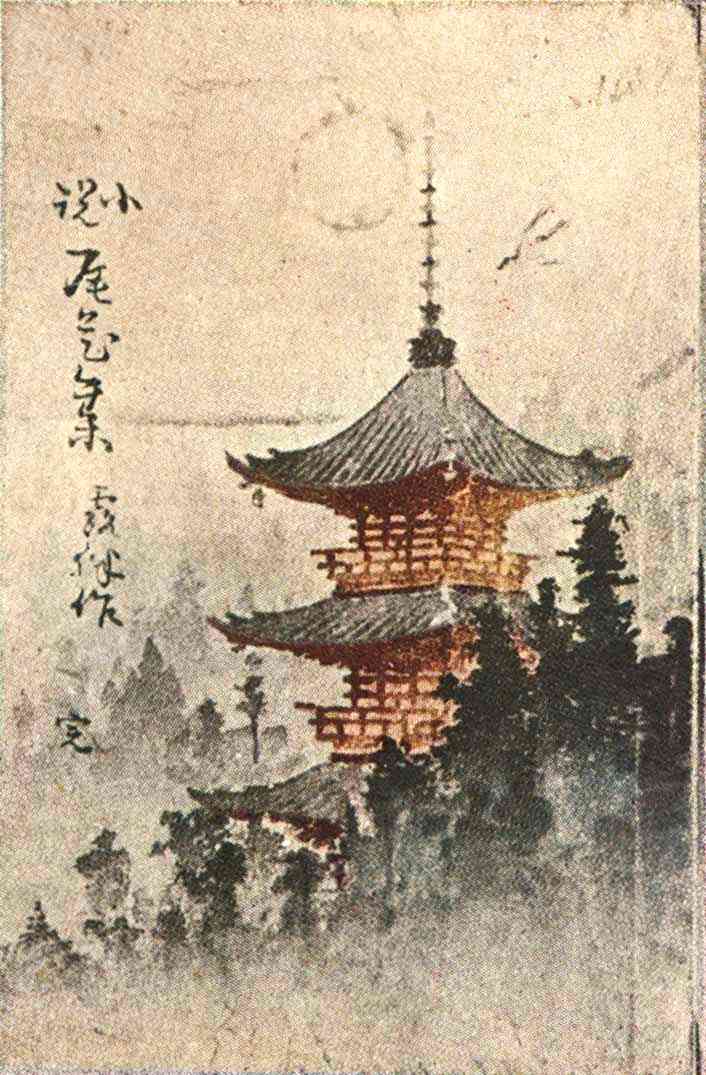 小説
尾花集
露伴作
完